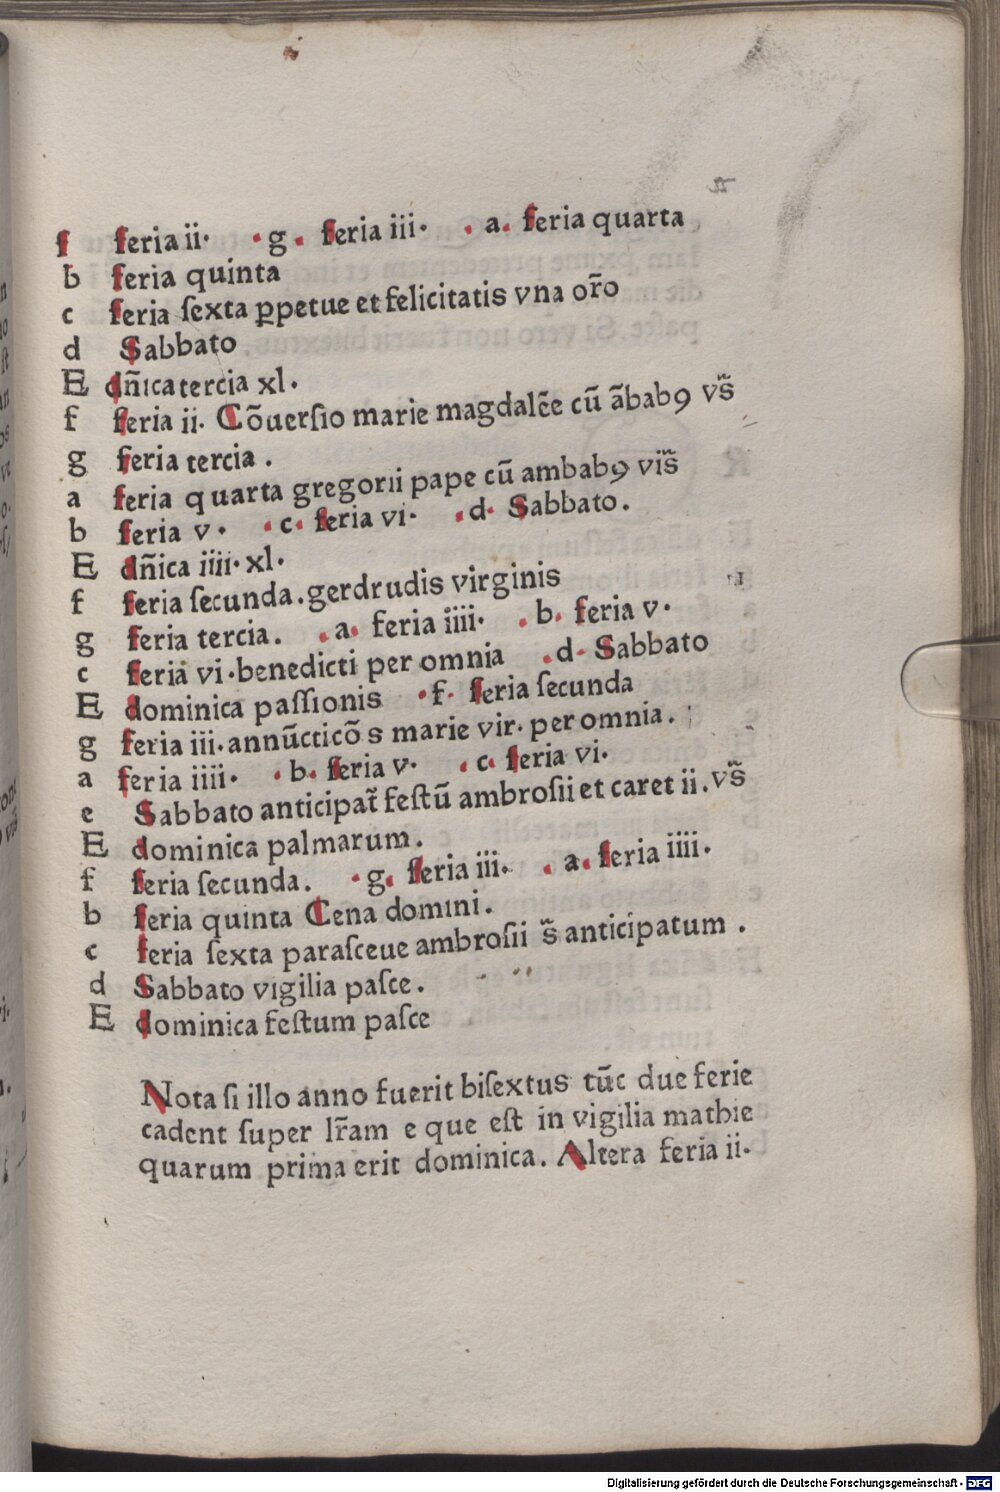 f feria ii· ·g. feria iii· .a. feria quarta
b feria quinta
c feria ſexta ꝑpetue et felicitatis vna or̄o
d Sabbato
E dn̄ica tercia xl.
f feria ii. Cōuerſio marie magdalēe cū ābabꝯ vs̄
g feria tercia.
a feria quarta gregorii pape cū ambabꝯ vis̄
b feria v· ·c· feria vi· .d· Sabbato.
E dn̄ica iiii· xl·
f feria ſecunda.gerdrudis virginis
g feria tercia. .a. feria iiii· .b. feria v·
c feria vi·benedicti per omnia .d· Sabbato
E dominica paſſionis ·f· feria ſecunda
g feria iii.annūcticōs marie vir· per omnia.
a feria iiii· ·b. feria v· .c· feria vi·
e Sabbato anticipat̄ feſtū ambroſii et caret ii.vs̄
E dominica palmarum.
f feria ſecunda. ·g. feria iii· .a. feria iiii·
b feria quinta Cena domini.
c feria ſexta paraſceue ambroſii s̄ anticipatum.
d Sabbato vigilia paſce.
E dominica feſtum paſce
Nota ſi illo anno fuerit biſextus tūc due ferie
cadent ſuper lr̄am e que eſt in vigilia mathie
quarum prima erit dominica. Altera feria ii·
Digitalisierung gefördert durch die Deutsche Forschungsgemeinschaft - DFG